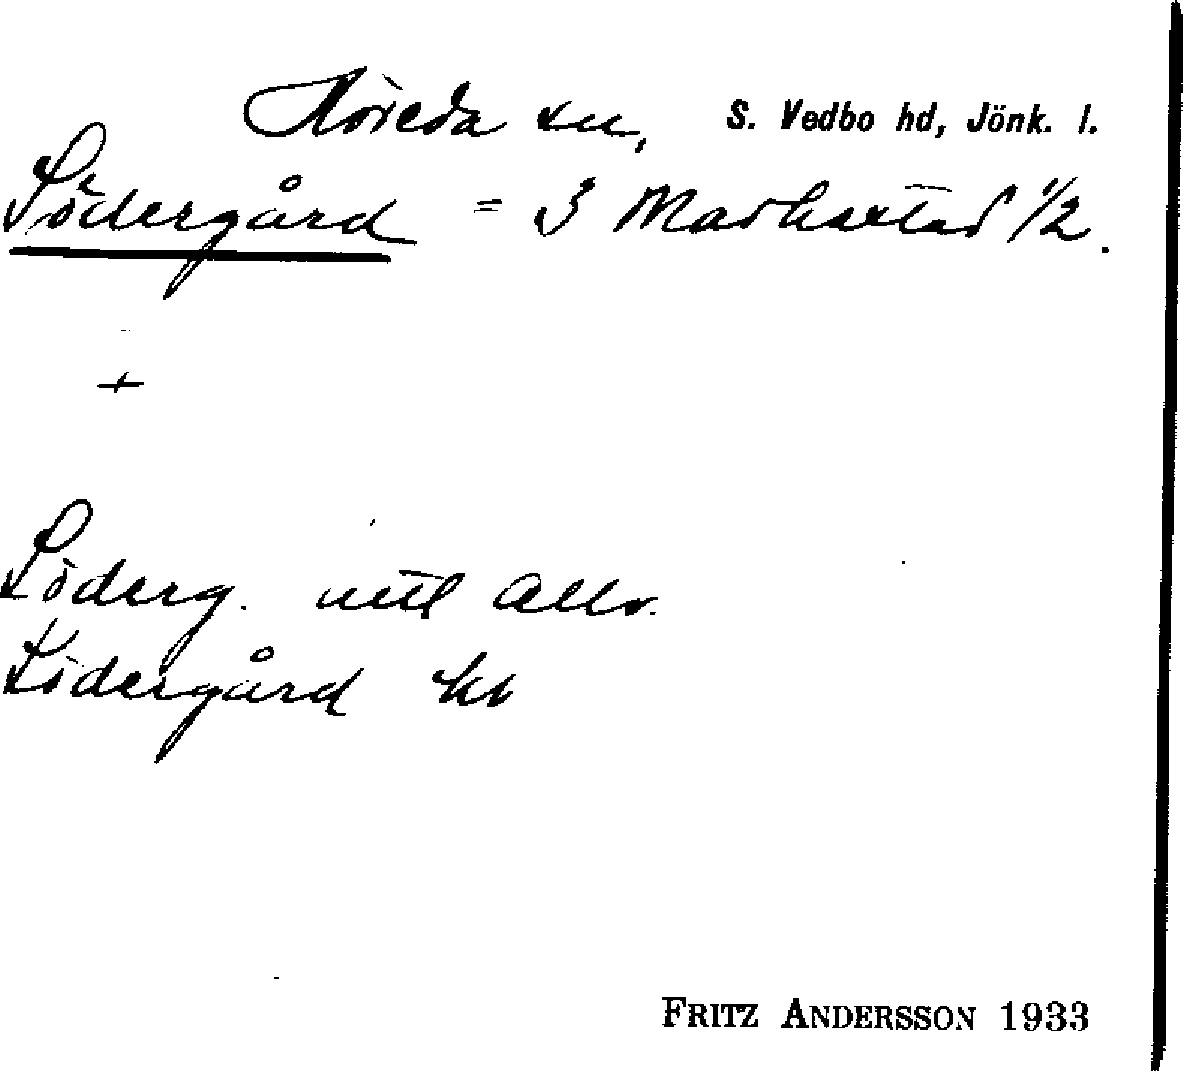 Höreda sn, S. Vedbo hd, Jönk. l.
Södergård = 3 Markestad 1/2.
+
Söderg. utl allv.
Södergård kb
FRITZ ANDERSSON 1933